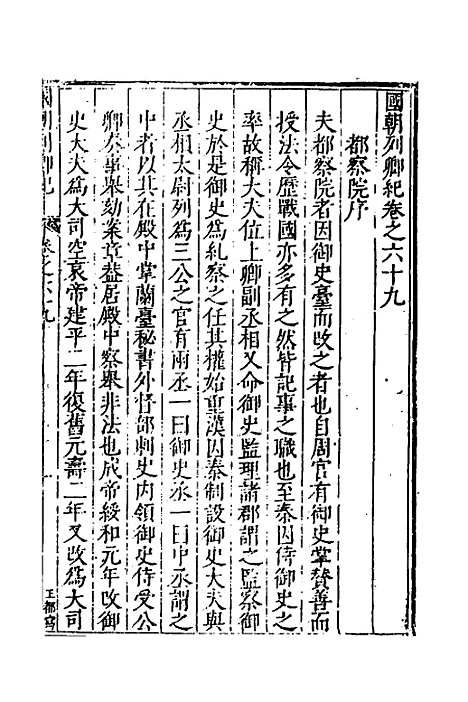 國朝列卿紀卷之六十九
都察院序
夫都察院者因御史臺而改之者也自周官有御史掌贊善而
授法令歷戰國亦多有之然皆記事之職也至秦因侍御史之
率故稱大夫位上卿副丞相又命御史監理諸郡謂之監察御
史於是御史爲糺察之任其權始重漢因秦制設御史大夫與
丞相太尉列爲三公之官有兩丞一曰御史丞一曰中丞謂之
中者以其在殿中掌蘭臺秘書外督部刺史内領御史侍受公
卿奏事舉劾案章葢居殿中察舉非法也成帝綏和元年改御
史大夫爲大司空哀帝建平二年復舊元壽二年又改爲大司
國朝列卿紀
卷之六十九
王都寫